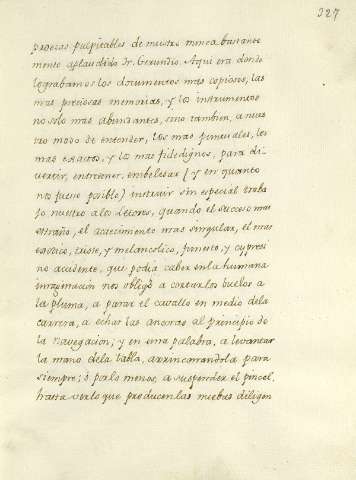 327
proezas pulpitables de nuestro nunca bastante
mente aplaudido Fr. Gerundio. Aqui era donde
lograbamos los documentos mas copiosos, las
mas preciosas memorias, y los instrumentos
no solo mas abundantes, sino tambien, a nues
tro modo de entender, los mas puntuales, los
mas exactos, y los mas fidedignos, para di-
vertir, entretener, embelesar (y en quanto
nos fuese posible) instruir sin especial traba
jo nuestro a los Letores, quando el suceso mas
estraño, el acaecimento mas singular, el mas
exotico, triste, y melancolico, funesto, y cypresi
no accidente, que podia caber en la humana
imaginacion nos obligò a cortar los buelos a
la pluma, a parar el cavallo en medio de la
carrera, a echar las ancoras al principio de
la navegacion; y en una palabra, a levantar
la mano de la tabla, arrinconandola para
siempre; ò por lo menos, a suspender el pincel,
hasta ver lo que producen las nuebas diligen